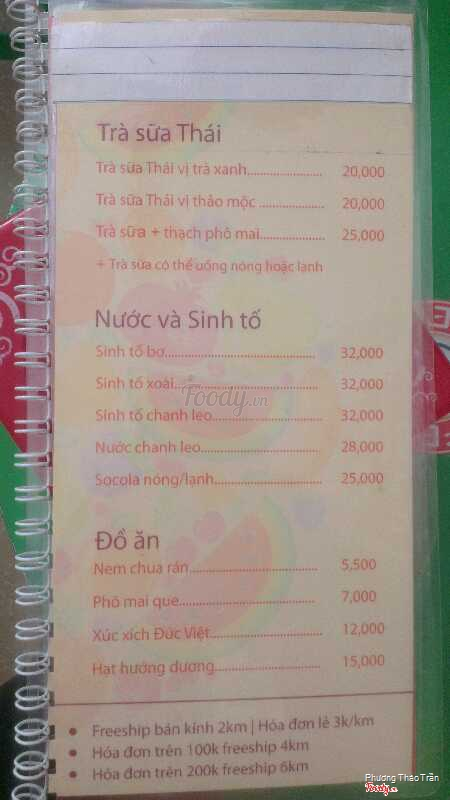 Trà sữa Thái
Trà sữa Thái vị trà xanh.................... 20,000
Trà sữa Thái vị thảo mộc .................. 20,000
Trà sữa + thạch phô mai.................. 25,000
+ Trà sữa có thể uống nóng hoặc lạnh
Nước và Sinh tố
Sinh tố bơ.......................................... 32,000
Sinh tố xoài...................................... 32,000
Foody.vn
Sinh tố chanh leo............................. 32,000
Nước chanh leo................................ 28,000
Socola nóng/lạnh............................. 25,000
Đồ ăn
Nem chua rán................................... 5,500
Phô mai que...................................... 7,000
Xúc xích Đức Việt.............................. 12,000
Hạt hướng dương............................. 15,000
• Freeship bán kính 2km | Hóa đơn lẻ 3k/km
• Hóa đơn trên 100k freeship 4km
• Hóa đơn trên 200k freeship 6km
Phương Thảo Trần
Foody.vn